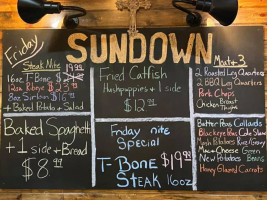 SUNDOWN
Friday
Steak Nite
16oz T-Bone $19.99
12oz Ribeye $23.99
8oz Sirloin $16.99
+ Baked Potato + Salad
Fried Catfish
Hushpuppies + 1 side
$12.99
Meat + 3
2 Roasted Leg Quarters
2 BBQ Leg Quarters
Pork Chops
Chicken Breast
Baked Spaghetti
+ 1 side + Bread
$8.99
Friday nite
Special
T-Bone $19.99
Steak 16oz
Butter Peas Collards
Blackeye Peas Cole Slaw
Mash Potatoes Rice/Gravy
Mac + Cheese Green
New Potatoes Beans
Honey Glazed Carrots